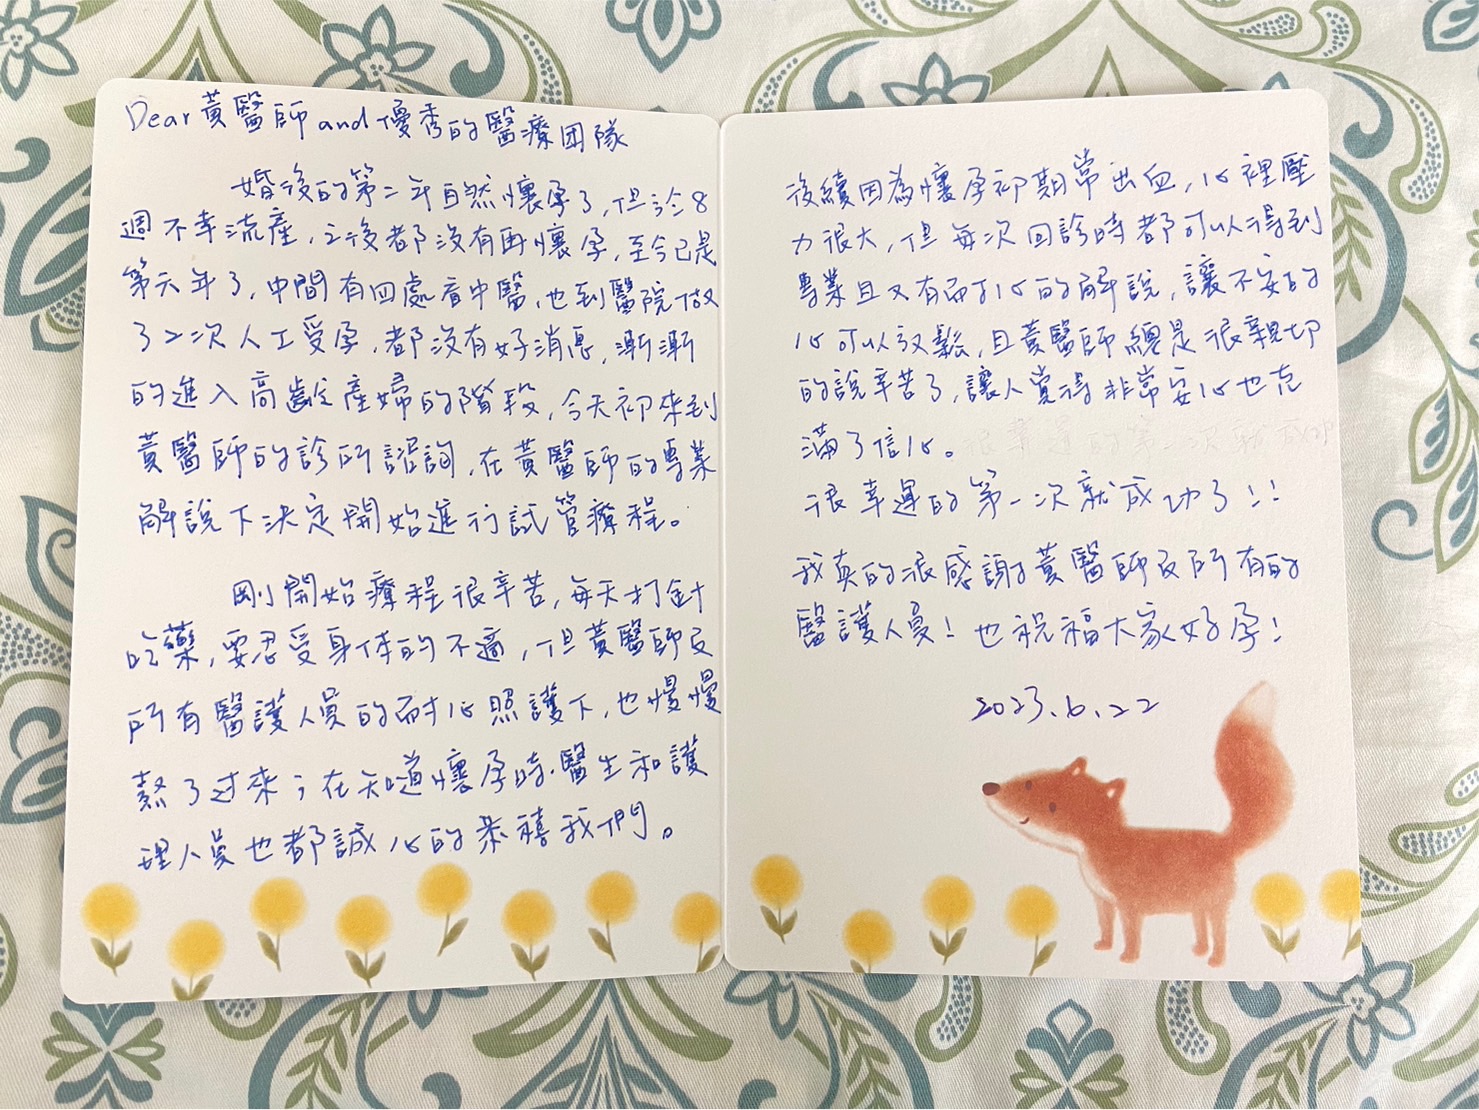 Dear 黃醫師 and 優秀的醫療团隊
婚後的第二年自然懷孕了,但於8
週不幸流產,之後都沒有再懷孕,至今已是
第六年了,中間有四處看中醫,也到醫院做
了2次人工受孕,都沒有好消息,漸漸
的進入高齡產婦的階段,今天初來到
黃醫師的診所諮詢,在黃醫師的專業
解說下決定開始進行試管療程。
剛開始療程很辛苦,每天打針
吃藥,要忍受身体的不適,但黃醫師及
所有醫護人員的耐心照護下,也慢慢
熬了过來;在知道懷孕時.醫生和護
理人員也都誠心的恭禧我們。
後續因為懷孕初期常出血,心裡壓
力很大,但每次回診時都可以得到
專業且又有耐心的解說,讓不安的
心可以放鬆,且黃醫師總是很親切
的說辛苦了,讓人覺得非常安心也充
滿了信心。
很幸運的第一次就成功了!!
我真的很感謝黃醫師及所有的
醫護人員!也祝福大家好孕!
2023.6.22